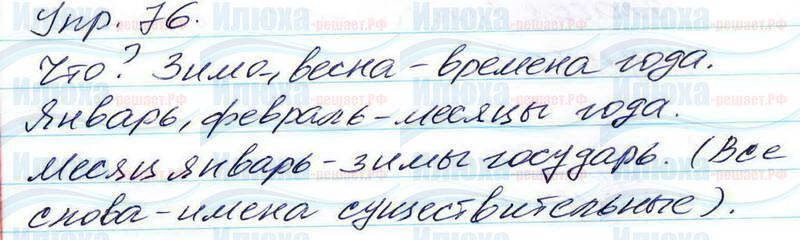 Упр. 76.
Что? Зима, весна – времена года.
Январь, февраль – месяцы года.
Месяц январь – зимы государь. (Все
слова – имена существительные).